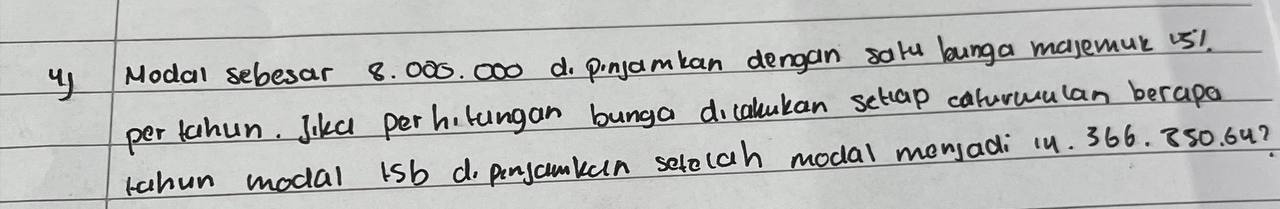 4) Modal sebesar 8.000.000 di pinjamkan dengan satu bunga majemuk 15%
per tahun. Jika perhitungan bunga dilakukan setiap caturwulan berapa
tahun modal tsb di pinjamkan setelah modal menjadi 14.366.850.64?